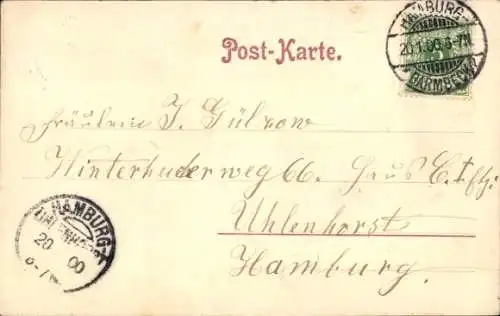 Post-Karte.
HAMBURG
20.1.00.6-7N
* BARMBECK *
Fräulein I. Gülzow
Winterhuderweg 66. Haus C. I
Uhlenhorst
Hamburg.
HAMBURG
20 00